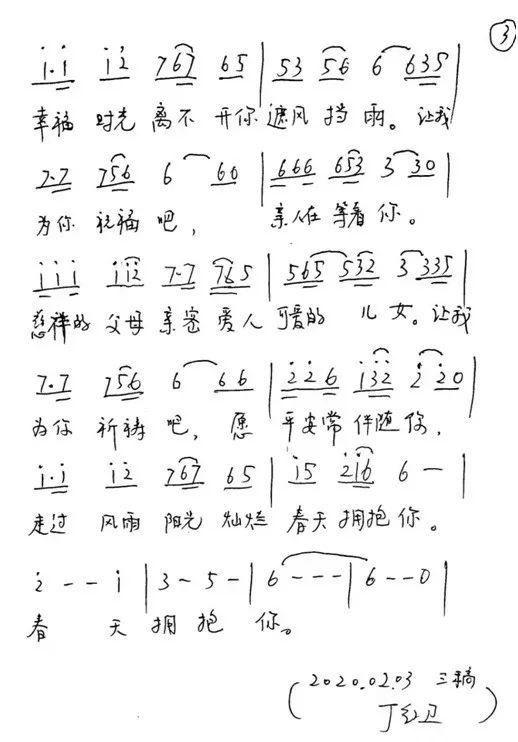 ③
i·i i2 767 65 | 53 56 6 635 |
幸福 时光 离不 开你 遮风 挡 雨。让我
7·7 756 6 60 | 666 653 3 30 |
为你 祝福 吧, 亲人在 等着 你。
iii ii2 7·7 765 | 565 532 3 335 |
慈祥的 父母 亲密 爱人 可爱的 儿 女。让我
7·7 756 6 66 | 226 i32 2 20 |
为你 祈祷 吧, 愿 平安常 伴随 你,
i·i i2 767 65 | i5 2i6 6 — |
走过 风雨 阳光 灿烂 春天 拥抱 你。
2 - - i | 3 - 5 - | 6 - - - | 6 - - 0 |
春 天 拥 抱 你。
(2020.02.03 三稿
丁红卫)